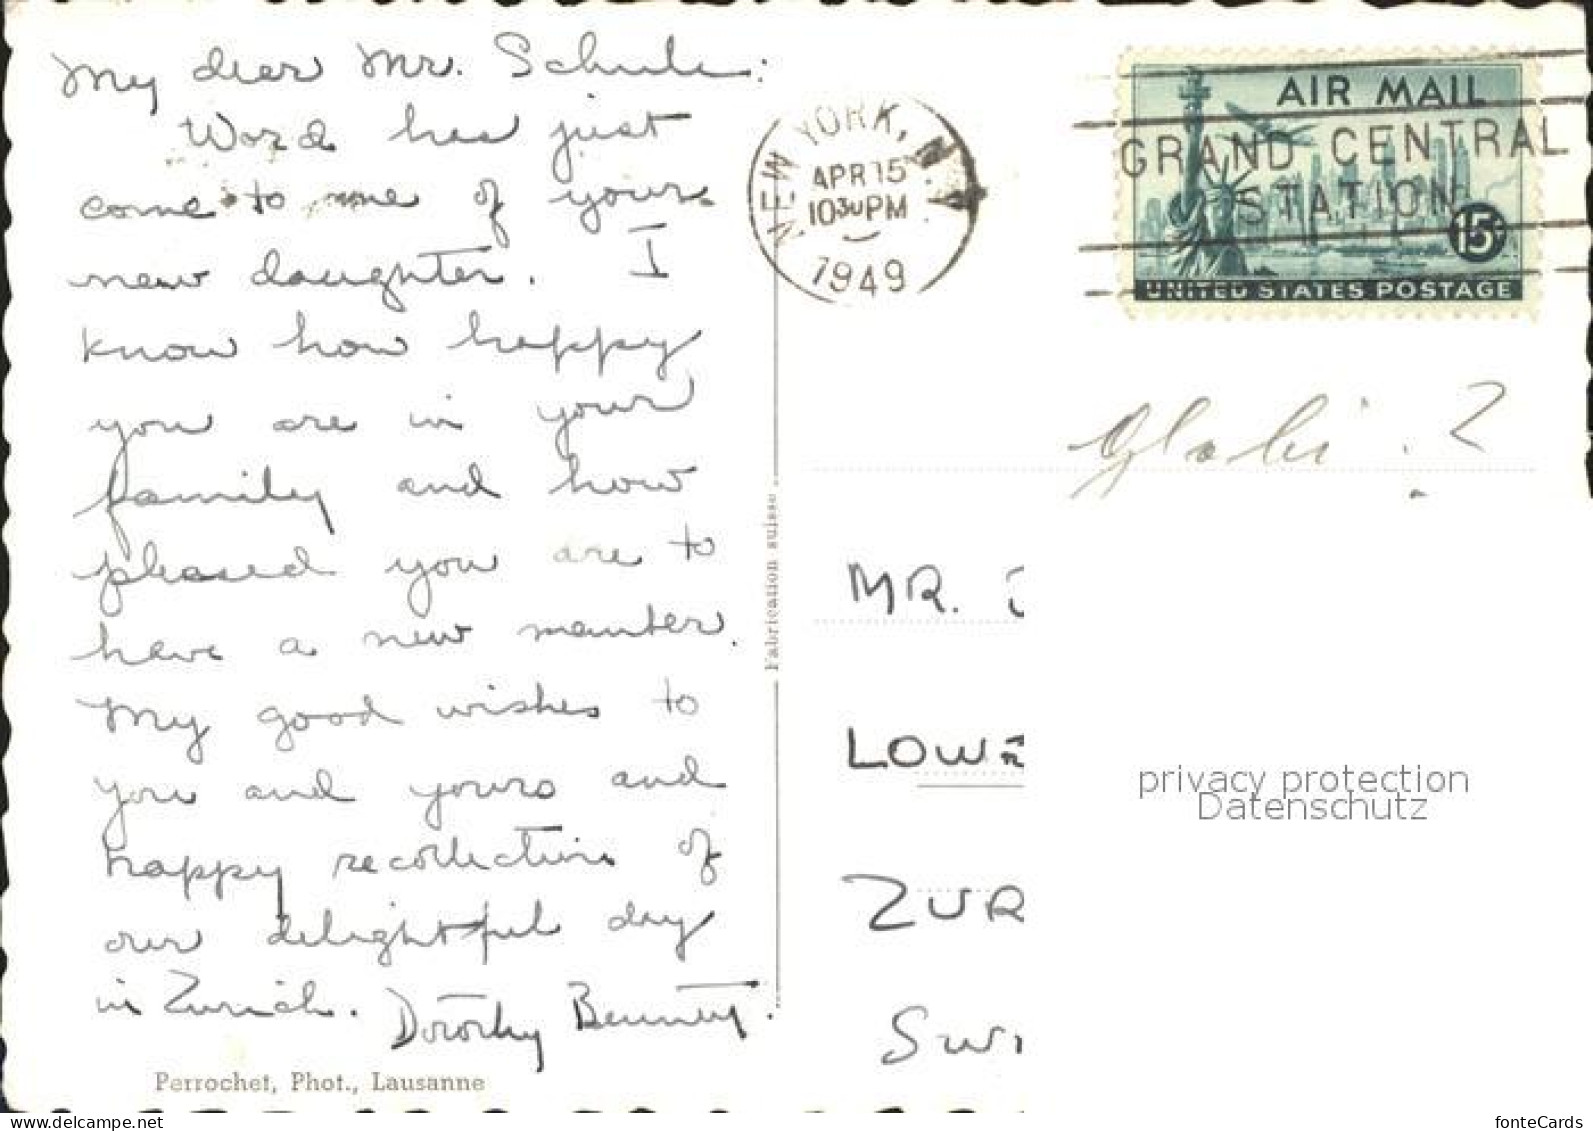 My dear Mr. Schule:
Word has just
come to me of your
new daughter. I
know how happy
you are in your
family and how
pleased you are to
have a new member.
My good wishes to
you and yours and
happy recollection of
our delightful day
in Zurich. Dorothy
Perrochet, Phot., Lausanne
Fabrication suisse
NEW YORK, N.Y.
APR 15
10 30 PM
1949
AIR MAIL
GRAND CENTRAL
STATION
15¢
UNITED STATES POSTAGE
Globi . ?
MR.
LOWE
ZUR
SWI
privacy protection
Datenschutz
www.delcampe.net
fonteCards